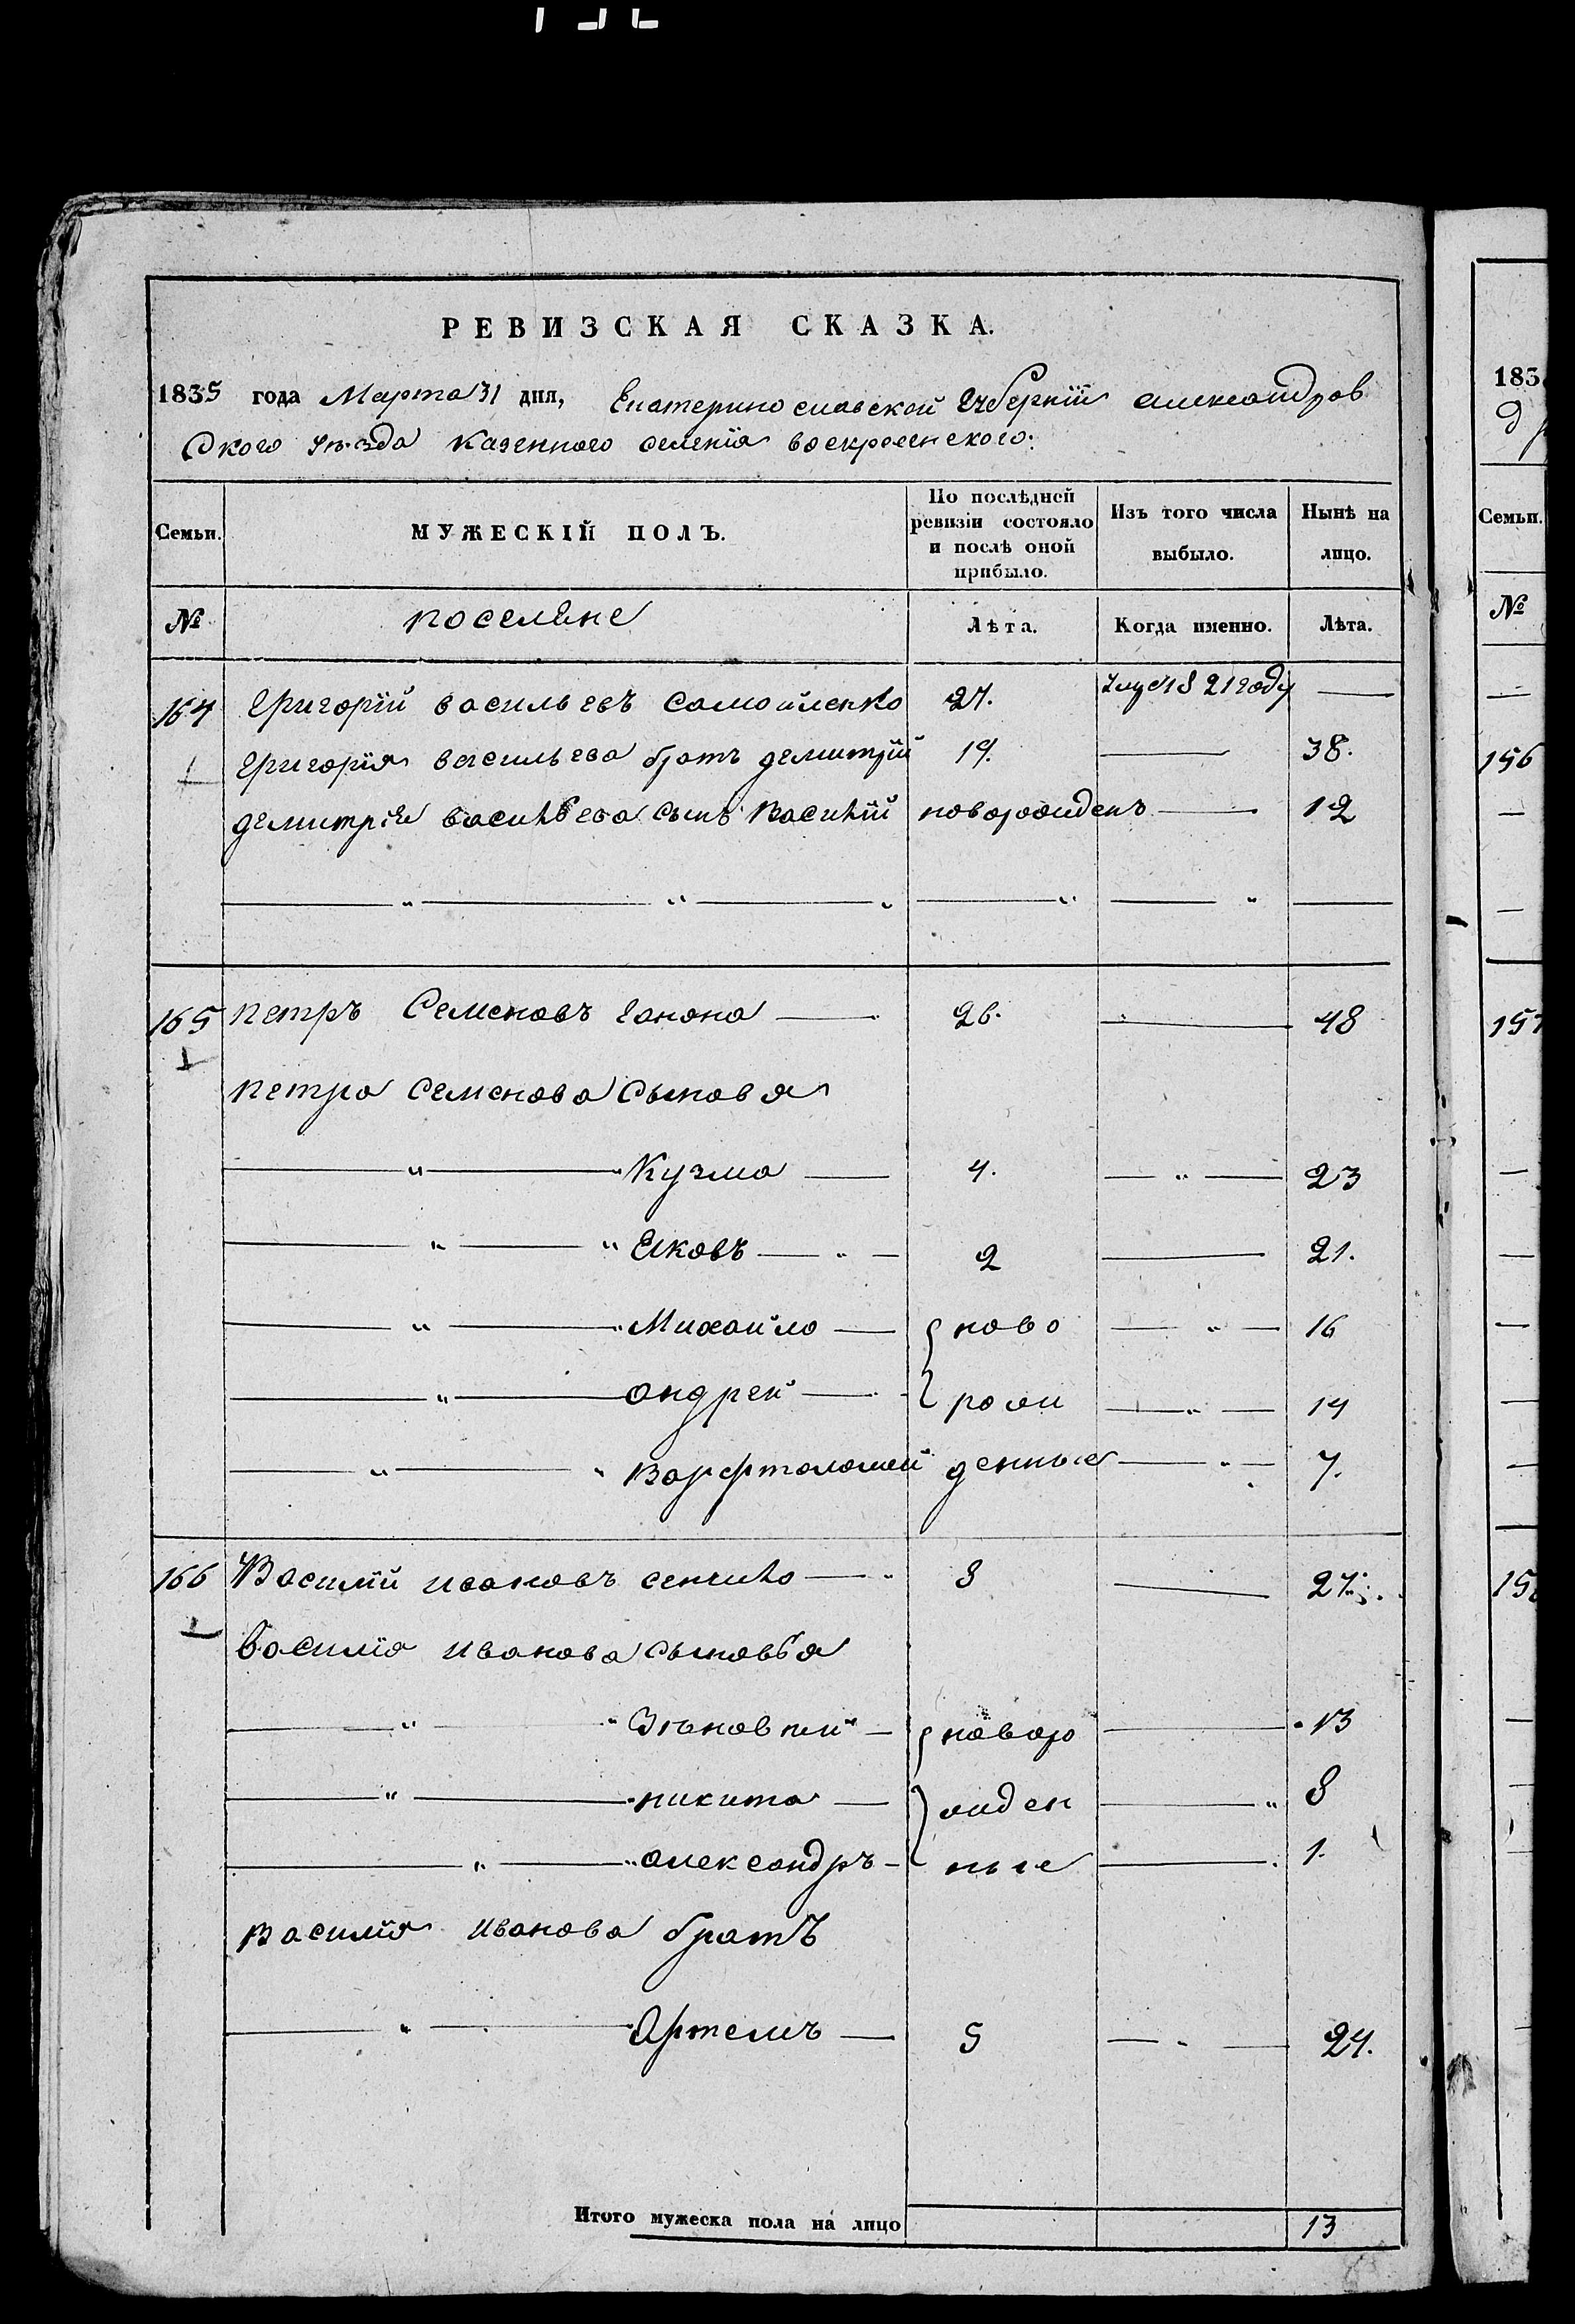 РЕВИЗСКАЯ СКАЗКА.
1835 года Марта 31 дня, Екатеринославской Губернїи александров
Ского уѣзда казенного селенїя воскресенского:
Семьи. МУЖЕСКІЙ ПОЛЪ. По послѣдней ревизіи состояло и послѣ оной прибыло. Изъ того числа выбыло. Нынѣ на лицо.
№ поселяне Лѣта. Когда именно. Лѣта.
164 Григорїй васильевъ самойленко 27. 1821 году —
Григорїя васильева братъ демитрїй 19. — 38.
демитрїя васильева сынъ Василїй новорожденъ — 12
165 петръ Семеновъ ганона — 26. — 48
петра семенова сыновя
— " — Кузма — 4. — " — 23
— " — " Яковъ — " — 2 — 21.
— " — Михайло — ново — " — 16
— " — андрей — рожи — " — 14
— " — " Варфтоломей денные — " — 7.
166 Василїй ивановъ сенчило — 8 — 27.
василїя иванова сыновья
— " — " Зѣновией — новоро — 13
— " — никита — жден — " 8
— " — александръ — ные — 1.
василїя иванова братъ
— " — Артемъ — 5 — 24.
Итого мужеска пола на лицо 13
183
Семьи.
№
156
157